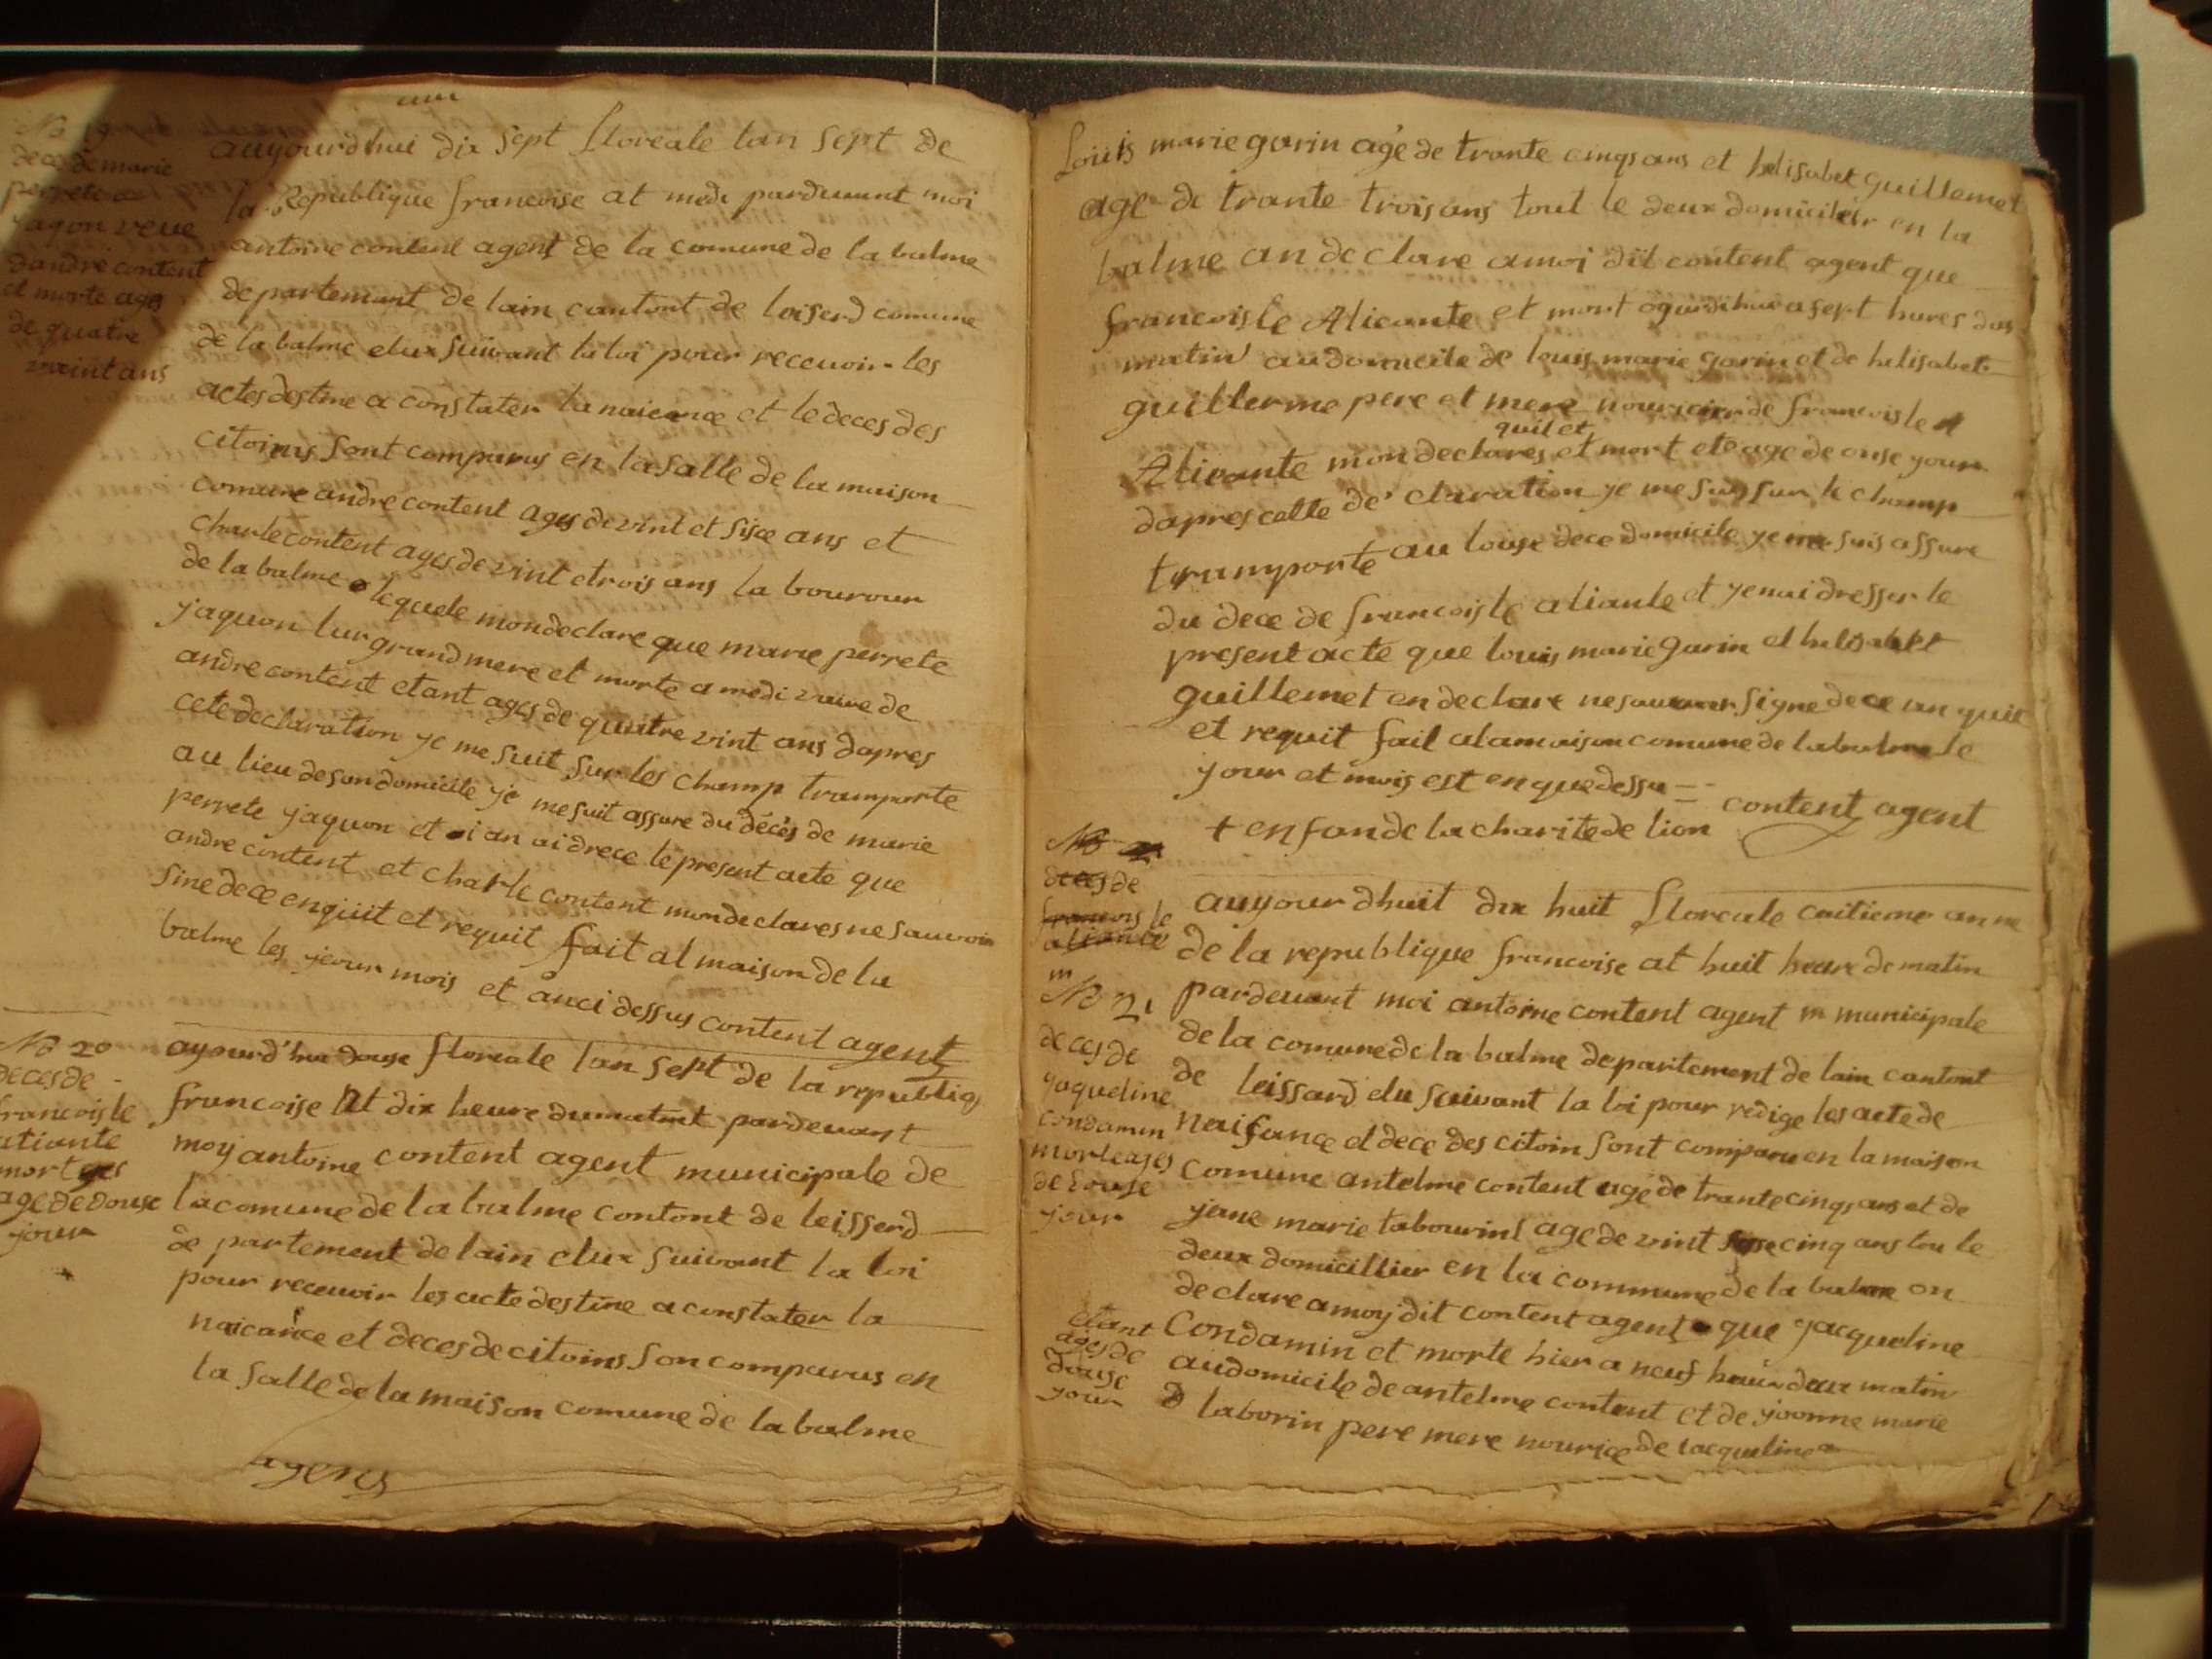 No 19
deces de marie
perrete
yaqon veue
dandre content
et morte ages
de quatre
vraint ans
auyourdhui dix sept floreale lan sept de
la Republique francoise at medi pardevant moi
antoine content agent de la comune de la balme
departemant de lain cantont de loiserd comune
de la balme elux suivant la loi pour recevoir les
actes destine a constater la naicance et le deces des
citoinis sont comparus en la salle de la maison
comune andre content ages de vint et sisce ans et
charle content ages de vint etrois ans la bourour
de la balme lequele mondeclare que marie perrete
yaquon lur grand mere et morte a medi vauve de
andre content etant ages de quatre vint ans dapres
cete declaration ye me suit sur les champ tramporte
au lieu de son domicile ye me suit assure du décès de marie
perrete yaquon et i an ai drece le present acte que
andre content et charle content mondeclares ne sauvoir
sine dece enquit et requit fait al maison de la
balme les jour mois et anci dessus content agent
No 20
deces de
francois le
atiante
mort ages
age de douse
jour
ayourd'hui douse floreale lan sept de la republiq
francoise At dix heure dumatint pardevant
moy antoine content agent municipale de
la comune de la balme contont de leisserd
de partement de lain elux suivant la loi
pour recevoir les acte destine a constater la
naicance et deces de citoins son comparus en
la salle de la maison comune de la balme
agens
Louis marie garin agé de trante cinqs ans et helisabet guillemet
age de trante trois ans tout le deux domicilér en la
balme an declare a moi dit content agent que
francois le Alicante et mort ogourdhui a sept hures das
matin au domicile de louis marie garin et de helisabet
guillerme pere et mere nouricier de francois le
quil et
Alicante mon declares et mort ete age de onse jour
dapres celle déclaration ye me suis sur le champ
tramporte au louse dece domicile ye me suis assure
du dece de francois le aliante et yenai dresser le
present acte que louis marie garin et helisabet
guillemet en declare ne sauvoir signe dece an quit
et requit fait alamaison comune de labalme le
your et mois est en quedessu content agent
+ enfan de la charite de lion
No
deces de
francois le
aliante
No 21
deces de
yaqueline
condamin
morte ages
de douse
jour
auyour dhuit dix huit floreale cuitieme anne
de la republique francoise at huit heure de matin
pardevant moi antoine content agent m municipale
de la comune de la balme departement de lain cantont
de leissard elu suivant la loi pour redige les acte de
naissance et dece des citoin sont comparu en la maison
comune antelme content agé de trante cinqs ans et de
jene marie tabourint age de vint cinq ans tou le
deux domicillier en la commune de la balme on
declare a moy dit content agent que yacqueline
étant
ages de
douse
jour
Condamin et morte hier a neuf heure deux matin
audomicile de antelme content et de yoonne marie
laborin pere mere nourice de iacqueline